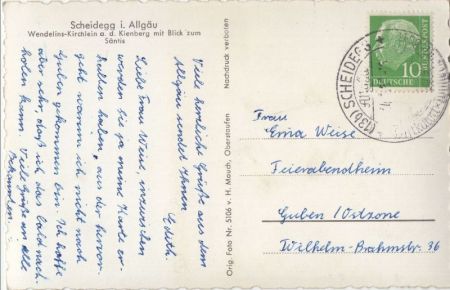 Scheidegg i. Allgäu
Wendelins-Kirchlein a. d. Kienberg mit Blick zum
Säntis
Viele herzliche Grüße aus dem
Allgäu sendet Ihnen
Edith.
Liebe Frau Weise, inzwischen
werden Sie ja meine Karte er-
halten haben, aus der hervor-
geht warum ich nicht nach
Guben gekommen bin. Ich hoffe
aber sehr, daß ich das bald nach-
holen kann. Viele Grüße an alle
Bekannten
Nachdruck verboten
Orig. Foto Nr. 5106 v. H. Mauch, Oberstaufen
DEUTSCHE BUNDESPOST
10
(13b) SCHEIDEGG
Frau
Erna Weise
Feierabendheim
Guben/Ostzone
Wilhelm-Brahmstr. 36